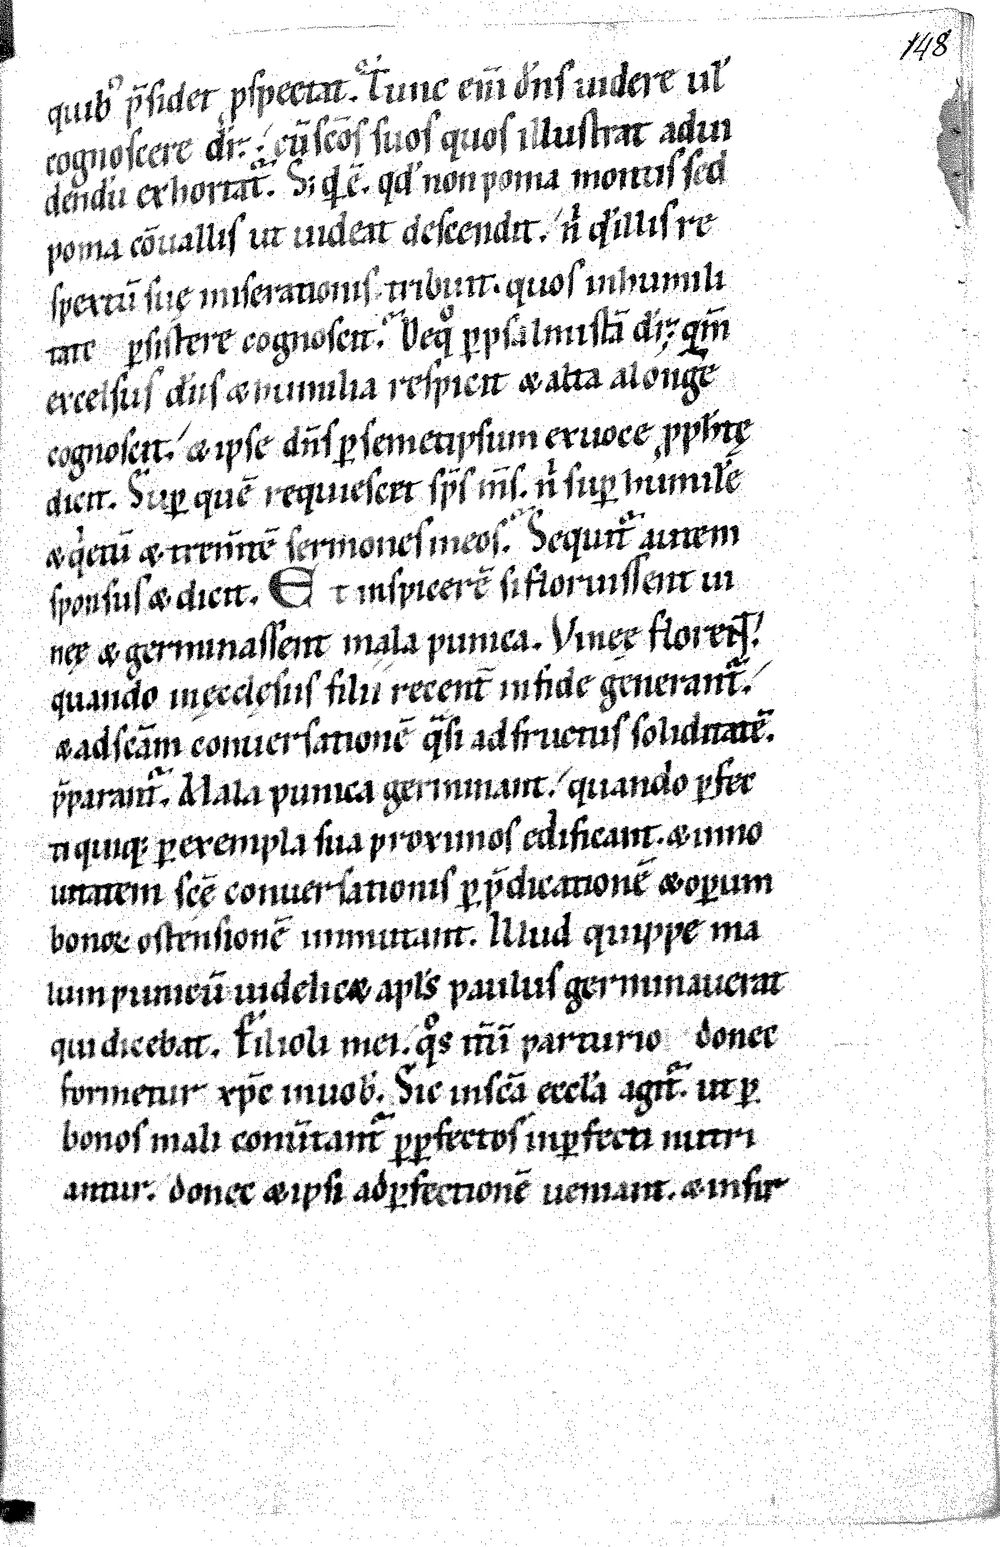 148
quib᾿ p̄sidet ꝓspectat. Tunc eni̅ dn̄s uidere ul̕
cognoscere dr̄. cū scōs suos quos illustrat ad ui
dendū exhortat̃. S; qͥd ē. qd̕ non poma montis sed
poma cōuallis ut uideat descendit. nͥ qd̕ illis re
spectū suę miserationis tribuit. quos in humili
tate ꝑsistere cognoscit. Vn̄ ꝑ psalmistā dr̄; qm̄
excelsus dn̄s & humilia respicit & alta a longe
cognoscit. & ipse dn̄s ꝑ semetipsum ex uoce ꝓph̄tę
dicit. Suꝑ quē requiescet sp̄s m̄s. nͥ suꝑ humilē
& qͥetū & trem̄tē sermones meos. Sequit̃ autem
sponsus & dicit. Et inspicerē si floruissent ui
neę & germinassent mala punica. Vineę floreꝶ
quando in ęcclesiis filii recent̄ in fide generant̃.
& ad scām conuersationē qͣsi ad fructus soliditatē.
p̄parant̃. Mala punica germinant. quando ꝑfec
ti quiq; ꝑ exempla sua proximos edificant. & in no
uitatem scē conuersationis ꝑ p̄dicationē & oꝑum
bonoꝝ ostensionē immutant. Illud quippe ma
lum punicū uidelic& apl̄s paulus germinauerat
qui dicebat. Filioli mei. qͦs it̄ū parturio donec
formetur xp̄c in uob̕. Sic in scā eccl̄a agit̃. ut ꝑ
bonos mali com̄utant̃ ꝑ ꝑfectos inꝑfecti nutri
antur. donec & ipsi ad ꝑfectionē ueniant. & infir